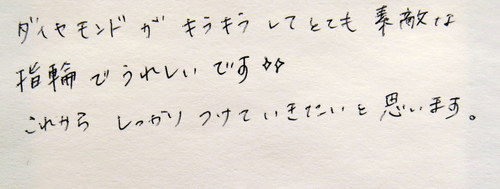 ダイヤモンドが キラキラしてとても素敵な
指輪でうれしいです☆☆
これから しっかりつけていきたいと思います。